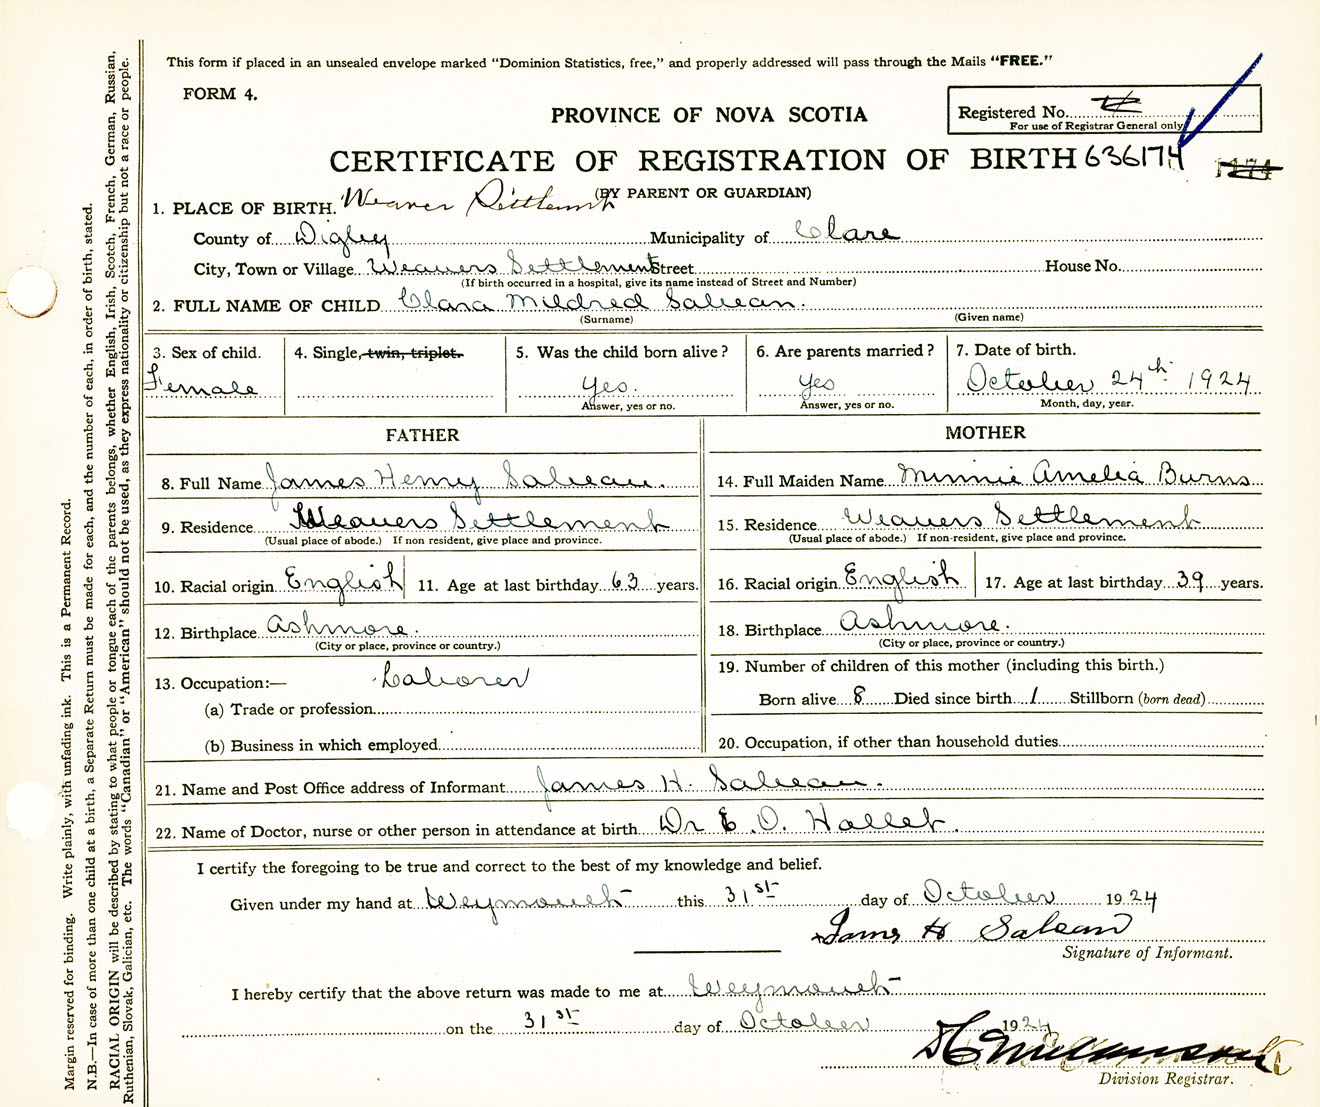 This form if placed in an unsealed envelope marked “Dominion Statistics, free,” and properly addressed will pass through the Mails “FREE.”
FORM 4.
PROVINCE OF NOVA SCOTIA
Registered No.
For use of Registrar General only
CERTIFICATE OF REGISTRATION OF BIRTH 636174
1174
(BY PARENT OR GUARDIAN)
1. PLACE OF BIRTH. Weaver Settlement
County of Digby Municipality of Clare
City, Town or Village Weavers Settlement Street House No.
(If birth occurred in a hospital, give its name instead of Street and Number)
2. FULL NAME OF CHILD Clara Mildred Sabean.
(Surname) (Given name)
3. Sex of child. 4. Single, twin, triplet. 5. Was the child born alive? 6. Are parents married? 7. Date of birth.
Female Yes. Yes October 24th 1924
Answer, yes or no. Answer, yes or no. Month, day, year.
FATHER MOTHER
8. Full Name James Henry Sabean. 14. Full Maiden Name Minnie Amelia Burns
9. Residence Weavers Settlement 15. Residence Weavers Settlement
(Usual place of abode.) If non resident, give place and province. (Usual place of abode.) If non-resident, give place and province.
10. Racial origin English 11. Age at last birthday 63 years. 16. Racial origin English 17. Age at last birthday 39 years.
12. Birthplace Ashmore. 18. Birthplace Ashmore.
(City or place, province or country.) (City or place, province or country.)
13. Occupation:— Laborer 19. Number of children of this mother (including this birth.)
(a) Trade or profession Born alive 8 Died since birth 1 Stillborn (born dead)
(b) Business in which employed 20. Occupation, if other than household duties
21. Name and Post Office address of Informant James H. Sabean.
22. Name of Doctor, nurse or other person in attendance at birth Dr E. O. Hallet.
I certify the foregoing to be true and correct to the best of my knowledge and belief.
Given under my hand at Weymouth this 31st day of October 1924
James H Sabean
Signature of Informant.
I hereby certify that the above return was made to me at Weymouth
on the 31st day of October 1924
Division Registrar.
Margin reserved for binding. Write plainly, with unfading ink. This is a Permanent Record.
N.B.—In case of more than one child at a birth, a Separate Return must be made for each, and the number of each, in order of birth, stated.
RACIAL ORIGIN will be described by stating to what people or tongue each of the parents belongs, whether English, Irish, Scotch, French, German, Russian,
Ruthenian, Slovak, Galician, etc. The words “Canadian” or “American” should not be used, as they express nationality or citizenship but not a race or people.